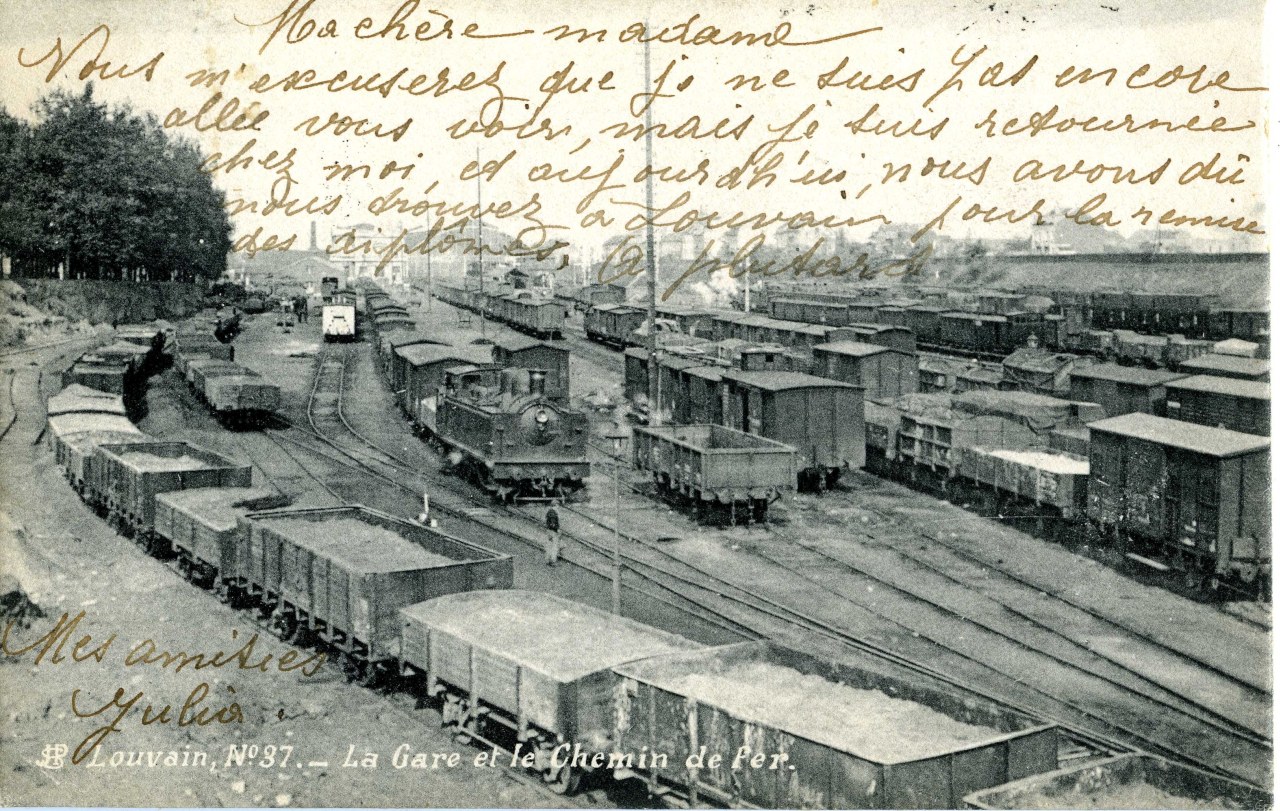 Ma chère madame
Vous m'excuserez que je ne suis pas encore
allée vous voir, mais je suis retournée
chez moi, et aujourdh'ui, nous avons dû
nous trouvez à Louvain pour la remise
des diplômes, A plutard
Mes amitiés
Julia.
Louvain, No 37. - La Gare et le Chemin de Fer.